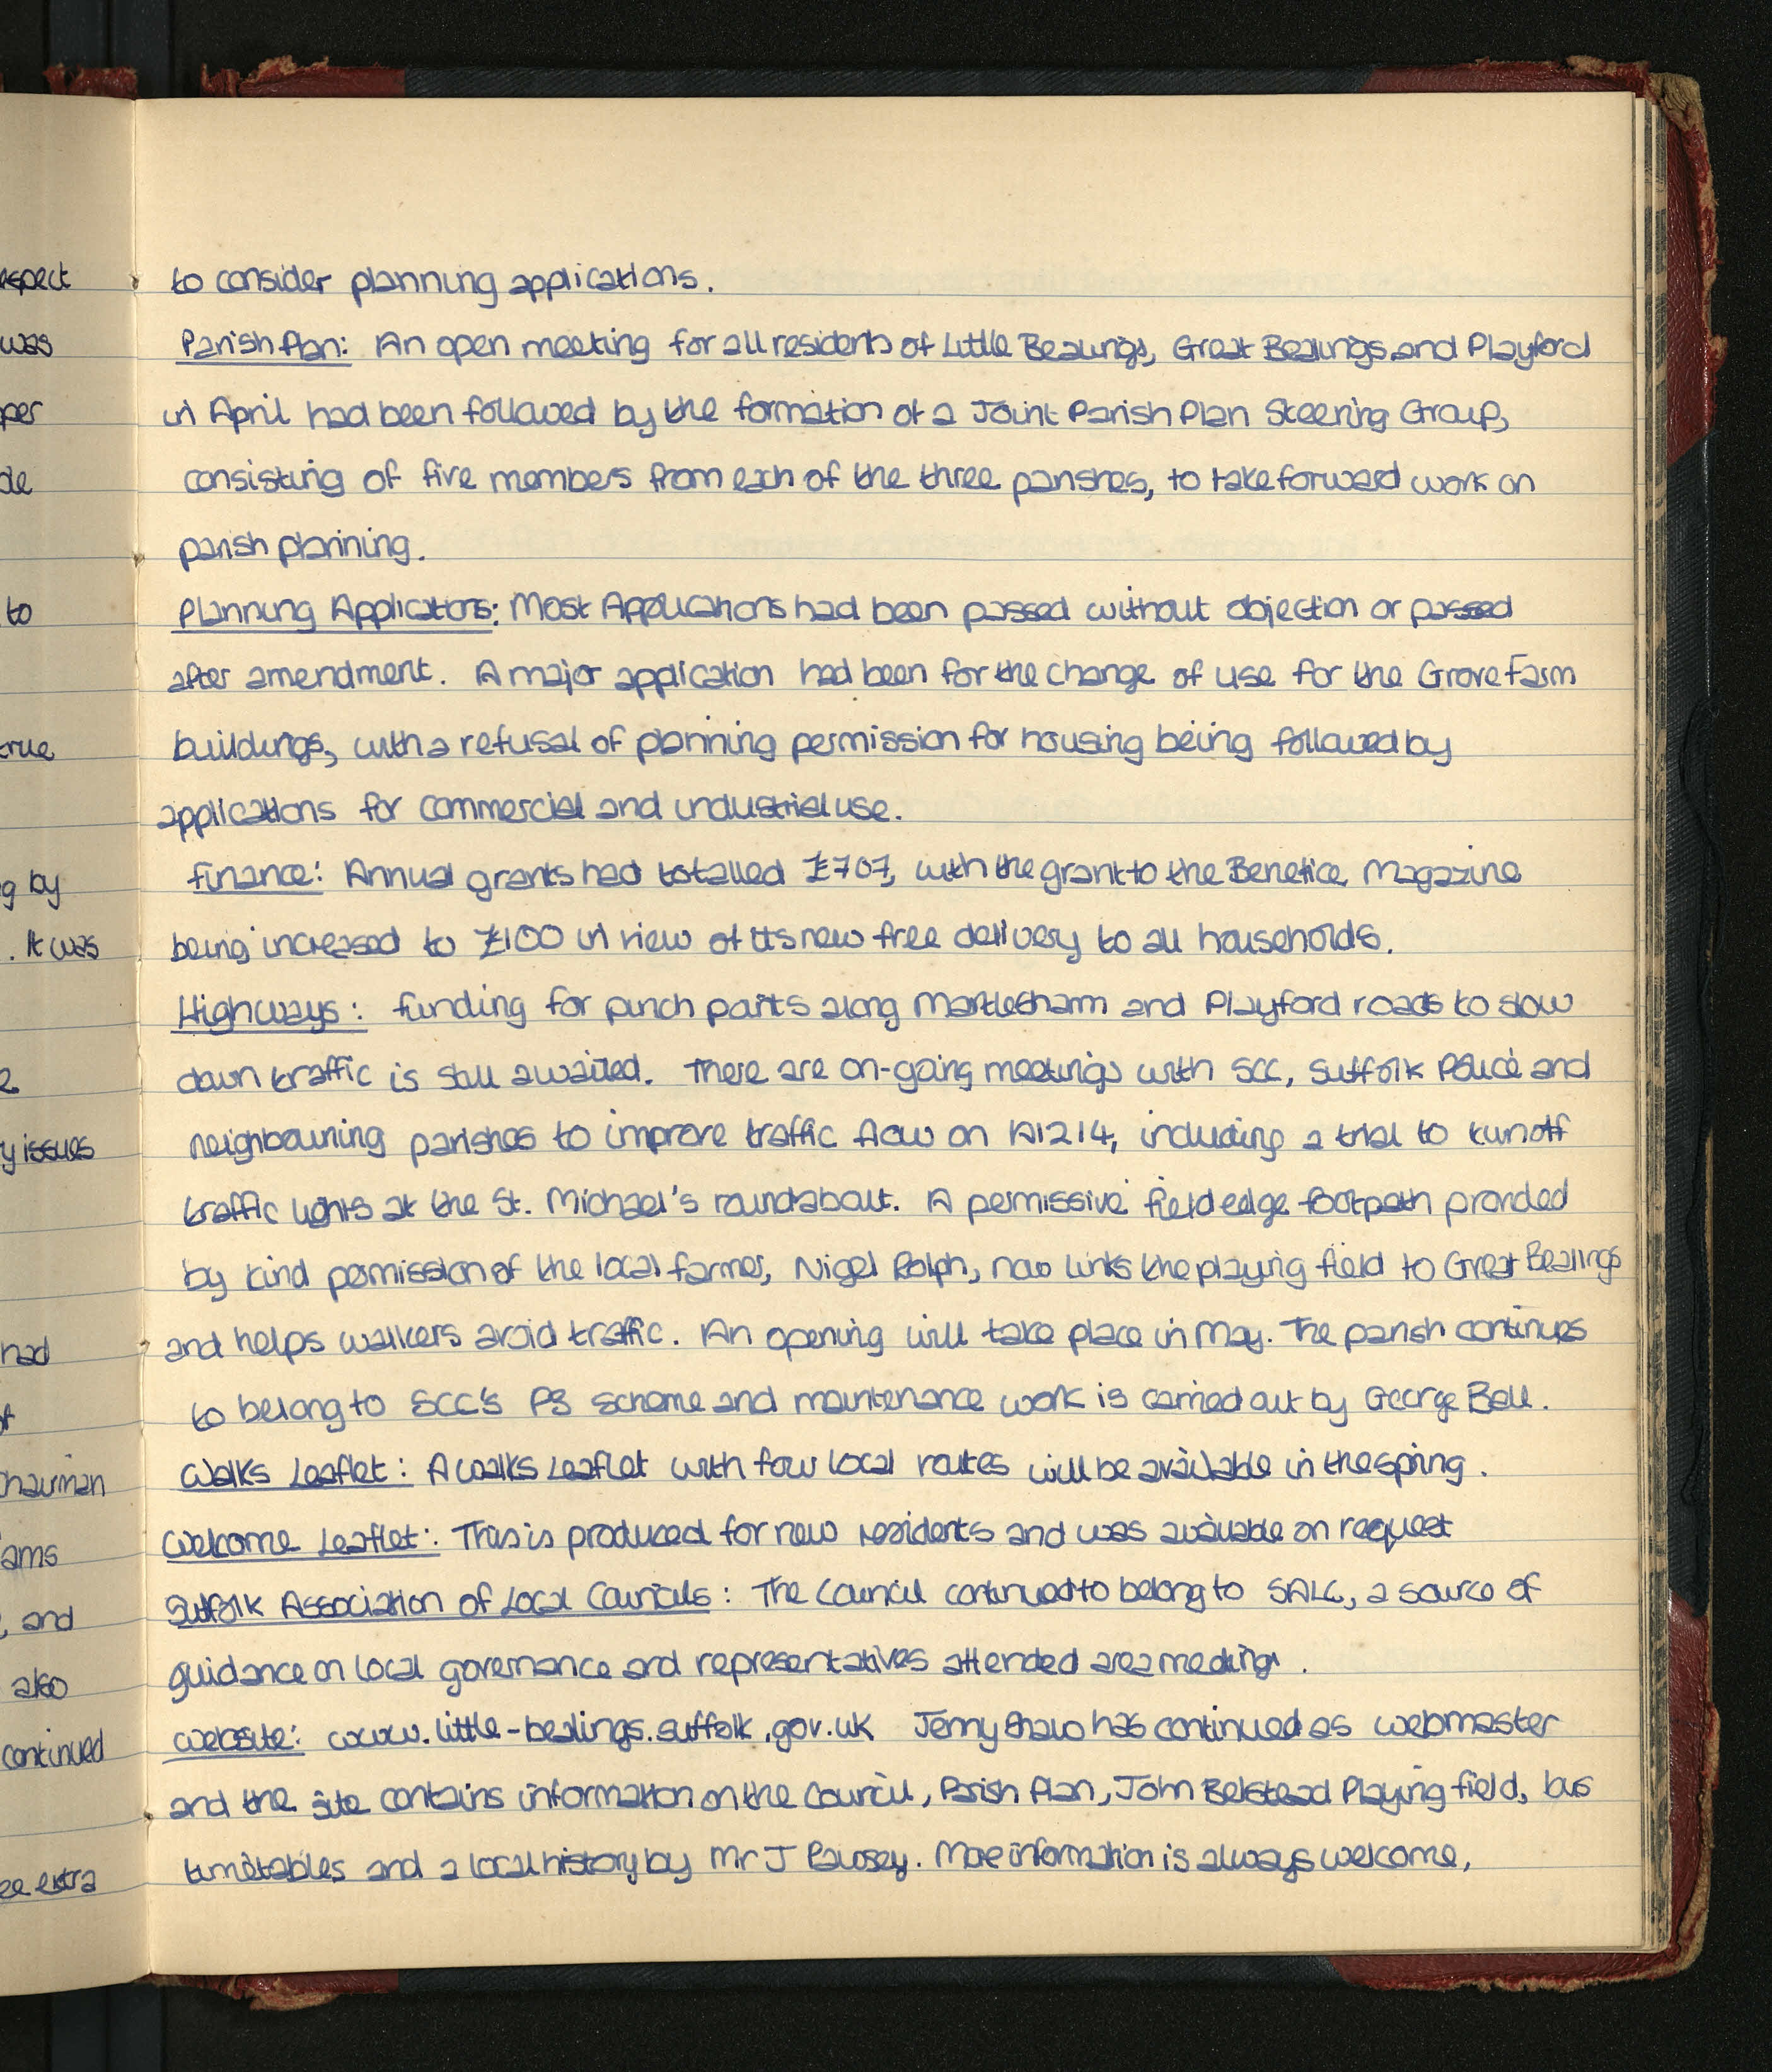 espect
was
per
de
to
true
g by
. It was
e
y issues
had
of
Chairman
ams
, and
also
continued
ee extra
to consider planning applications.
Parish Plan: An open meeting for all residents of Little Bealings, Great Bealings, and Playford
in April had been followed by the formation of a Joint Parish Plan Steering Group,
consisting of five members from each of the three parishes, to take forward work on
parish planning.
Planning Applications: Most Applications had been passed without objection or passed
after amendment. A major application had been for the change of use for the Grove Farm
buildings, with a refusal of planning permission for housing being followed by
applications for commercial and industrial use.
Finance: Annual grants had totalled £707, with the grant to the Benefice Magazine
being increased to £100 in view of its new free delivery to all households.
Highways: Funding for pinch points along Martlesham and Playford roads to slow
down traffic is still awaited. There are on-going meetings with SCC, Suffolk Police and
neighbouring parishes to improve traffic flow on A1214, including a trial to turn off
traffic lights at the St. Michael's roundabout. A permissive field edge footpath provided
by kind permission of the local farmer, Nigel Rolph, now links the playing field to Great Bealings
and helps walkers avoid traffic. An opening will take place in May. The parish continues
to belong to SCC's P3 scheme and maintenance work is carried out by George Bell.
Walks Leaflet: A walks leaflet with four local routes will be available in the spring.
Welcome Leaflet: This is produced for new residents and was available on request
Suffolk Association of Local Councils: The Council continued to belong to SALC, a source of
guidance on local governance and representatives attended area meetings.
Website: www.little-bealings.suffolk.gov.uk Jenny Shaw has continued as webmaster
and the site contains information on the Council, Parish Plan, John Belstead Playing field, bus
timetables and a local history by Mr J Pawsey. More information is always welcome,